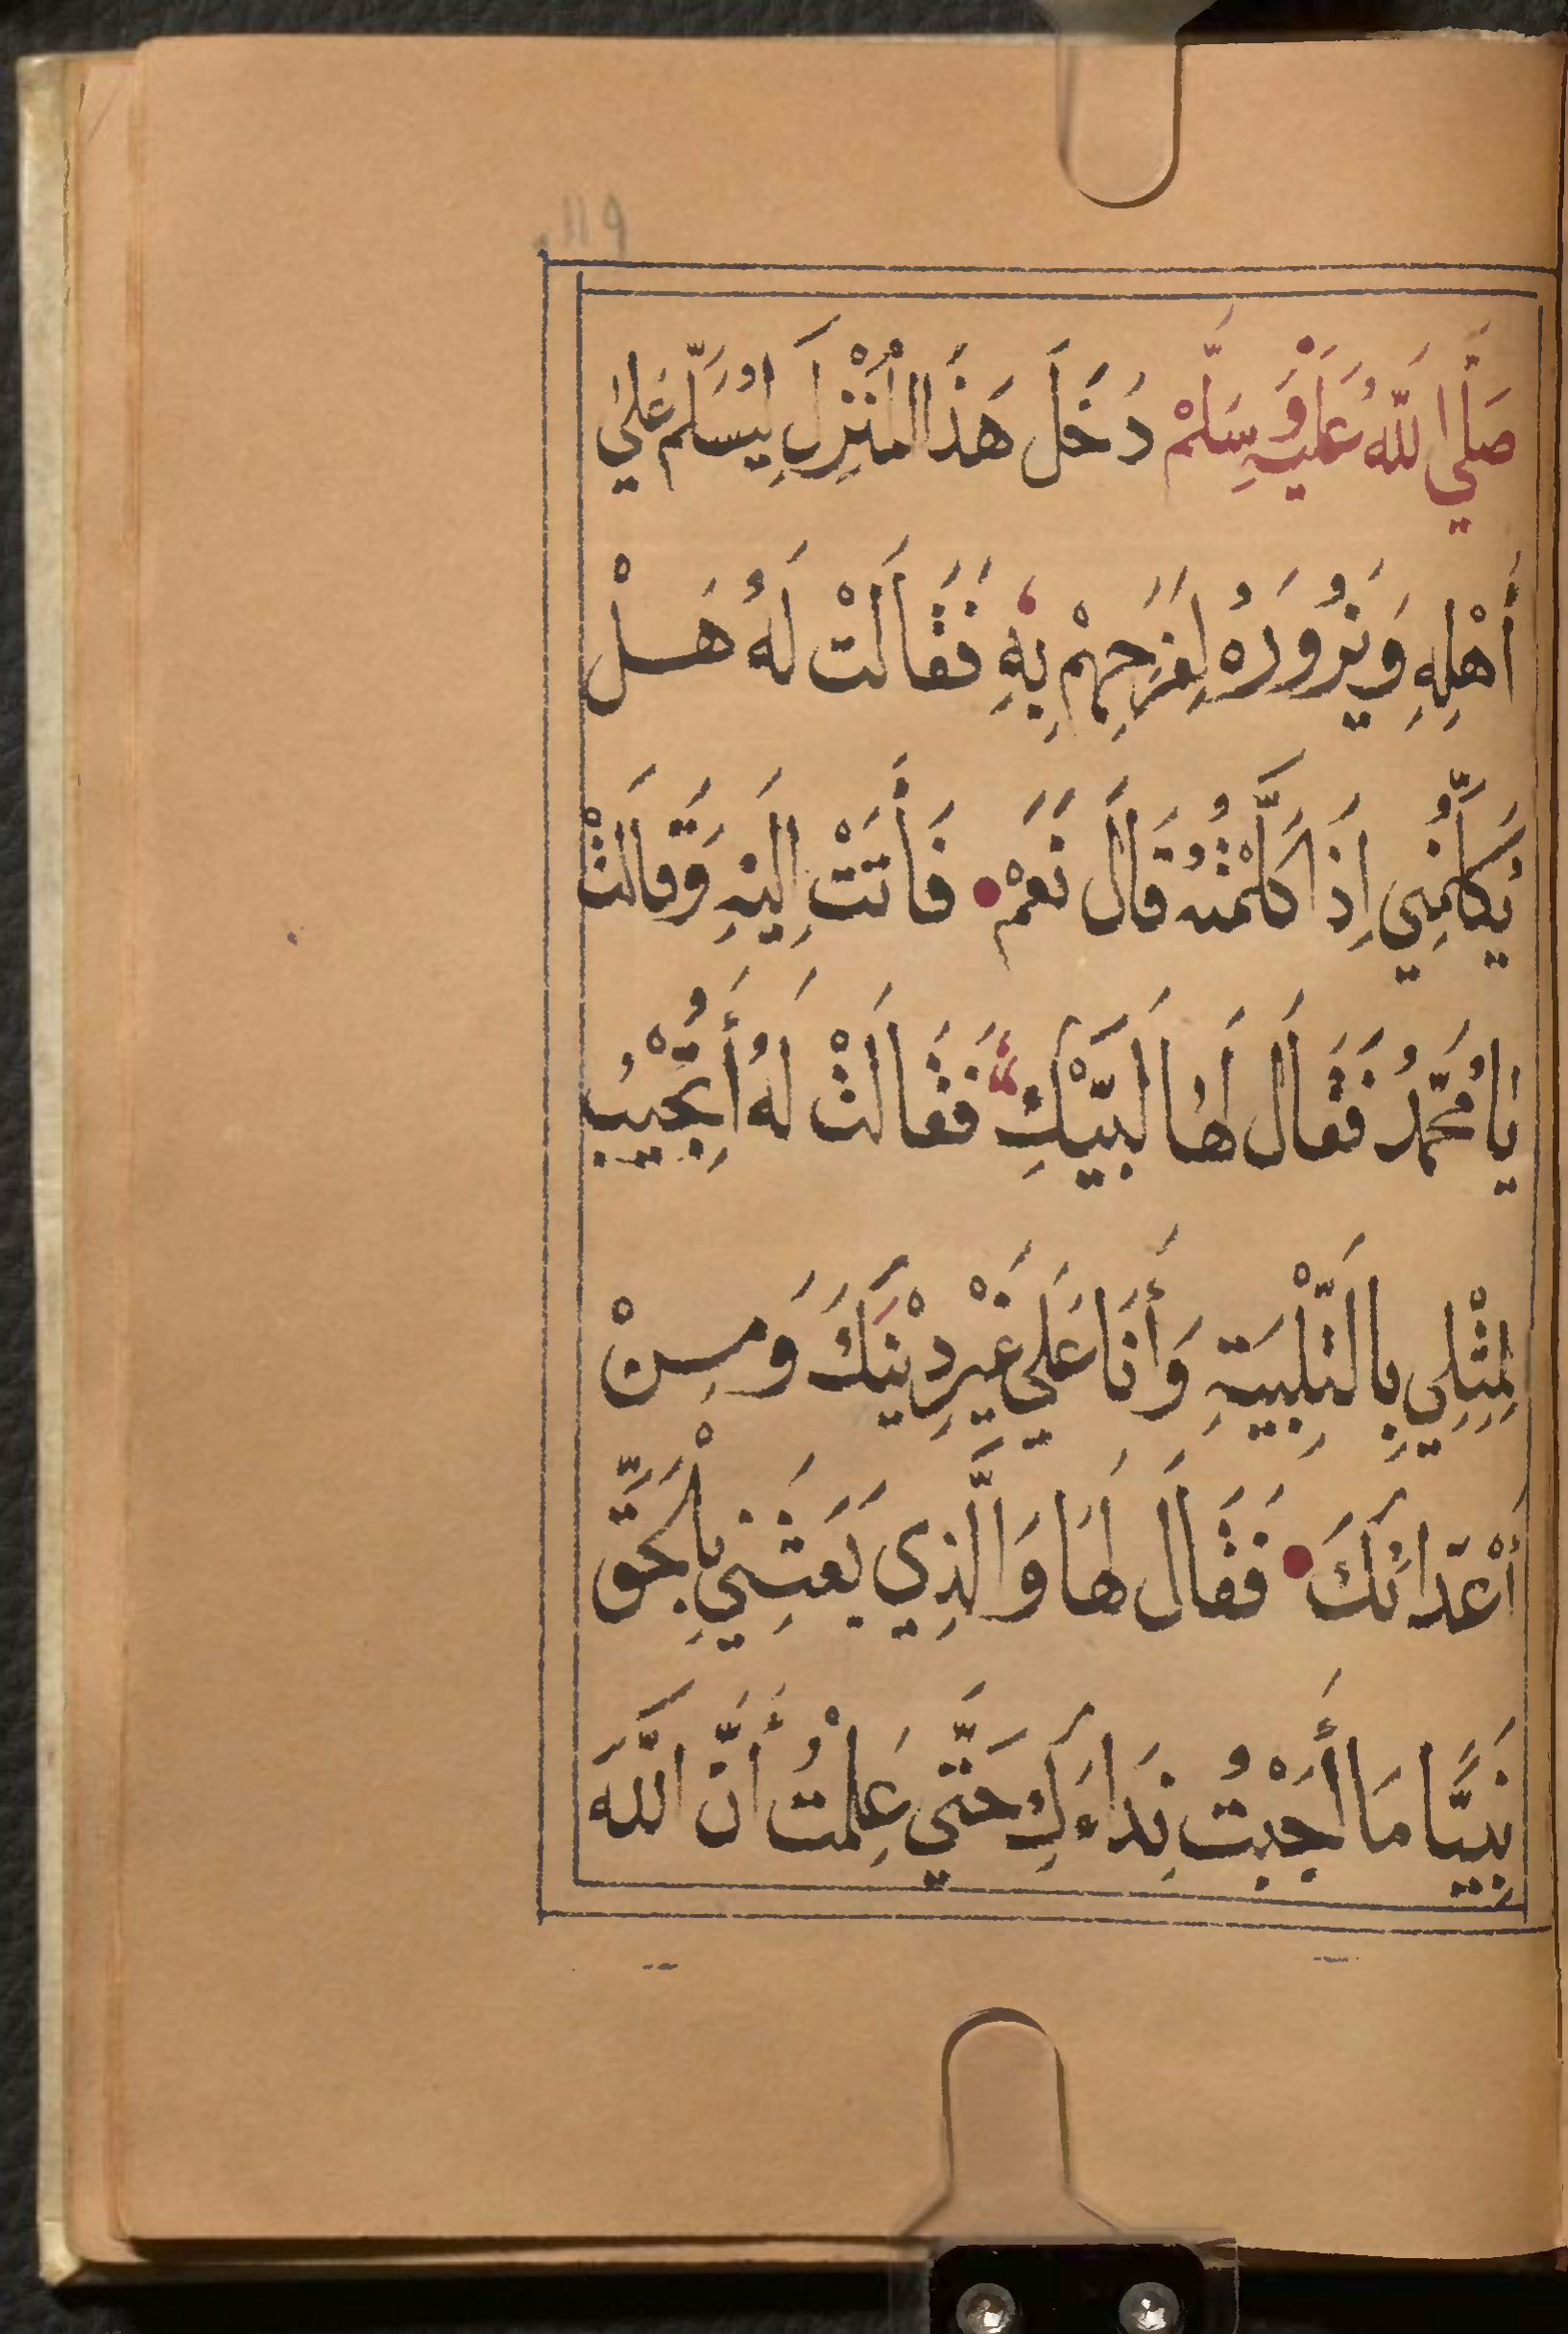 ١١٩
صَلَّي اللَّهُ عَلَيْهِ وَسَلَّمْ دَخَلَ هَذَا الْمَنْزِلَ لِيُسَلِّمَ عَلَي
أَهْلِهِ وَيَزُورَهُ لِفَرَحِهِمْ بِهِ فَقَالَتْ لَهُ هَلْ
يُكَلِّمُنِي اِذَا كَلَّمْتُهُ قَالَ نَعَمْ فَأَتَتْ اِلَيْهِ وَقَالَتْ
يَا مُحَمَّدُ فَقَالَ لَهَا لَبَّيْكِ فَقَالَتْ لَهُ أَتُجِيبُ
لِمِثْلِي بِالتَّلْبِيَةِ وَأَنَا عَلَي غَيْرِ دِيْنِكَ وَمِنْ
أَعْدَائِكَ فَقَالَ لَهَا وَالَّذِي بَعَثَنِي بِالْحَقِّ
نَبِيًّا مَا أَجَبْتُ نِدَاءَكِ حَتَّي عَلِمْتُ أَنَّ اللَّهَ